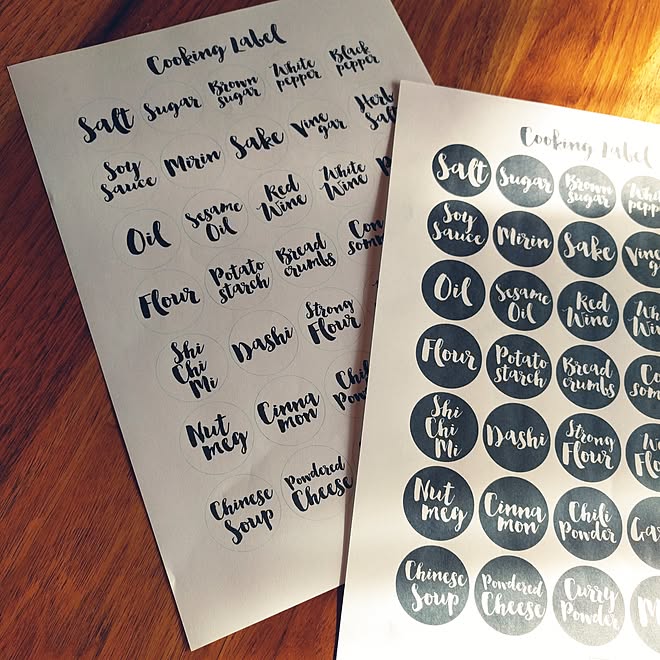 Cooking Label
Salt
Sugar
Brown
sugar
White
pepper
Black
pepper
Soy
Sauce
Mirin
Sake
Vine
gar
Herb
Sal
Oil
Sesame
Oil
Red
Wine
White
Wine
Flour
Potato
starch
Bread
crumbs
Con
somm
Shi
Chi
Mi
Dashi
Strong
Flour
Nut
meg
Cinna
mon
Chil
Pow
Chinese
Soup
Powdered
Cheese
Cooking Label
Salt
Sugar
Brown
sugar
Whi
pepp
Soy
Sauce
Mirin
Sake
Vine
ga
Oil
Sesame
Oil
Red
Wine
Wh
Wi
Flour
Potato
starch
Bread
crumbs
Co
som
Shi
Chi
Mi
Dashi
Strong
Flour
Nut
meg
Cinna
mon
Chili
Powder
Ga
Chinese
Soup
Powdered
Cheese
Curry
Powder